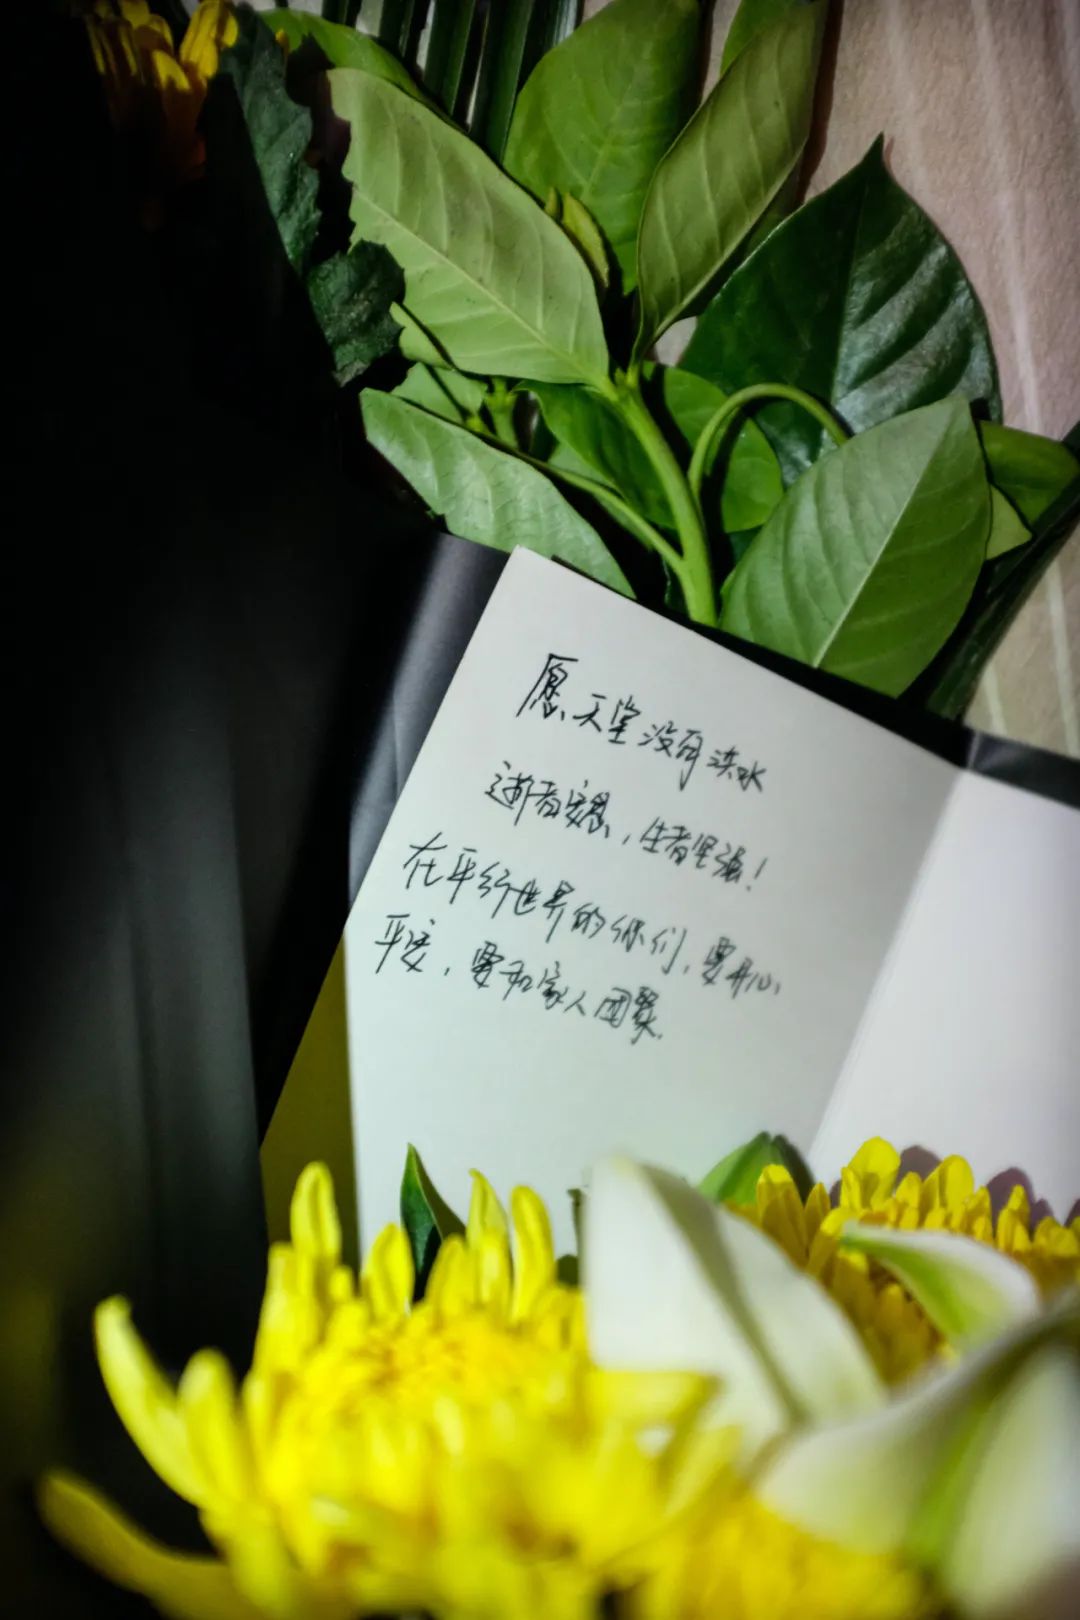 愿天堂没有洪水
逝者安息，生者坚强！
在平行世界的你们，要开心、
平安，要和家人团聚.